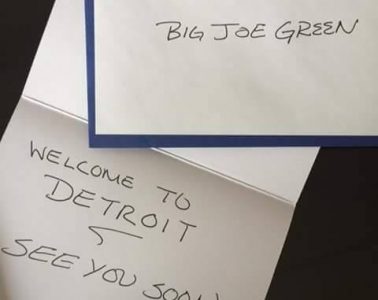 BIG JOE GREEN
WELCOME TO
DETROIT
SEE YOU SOON